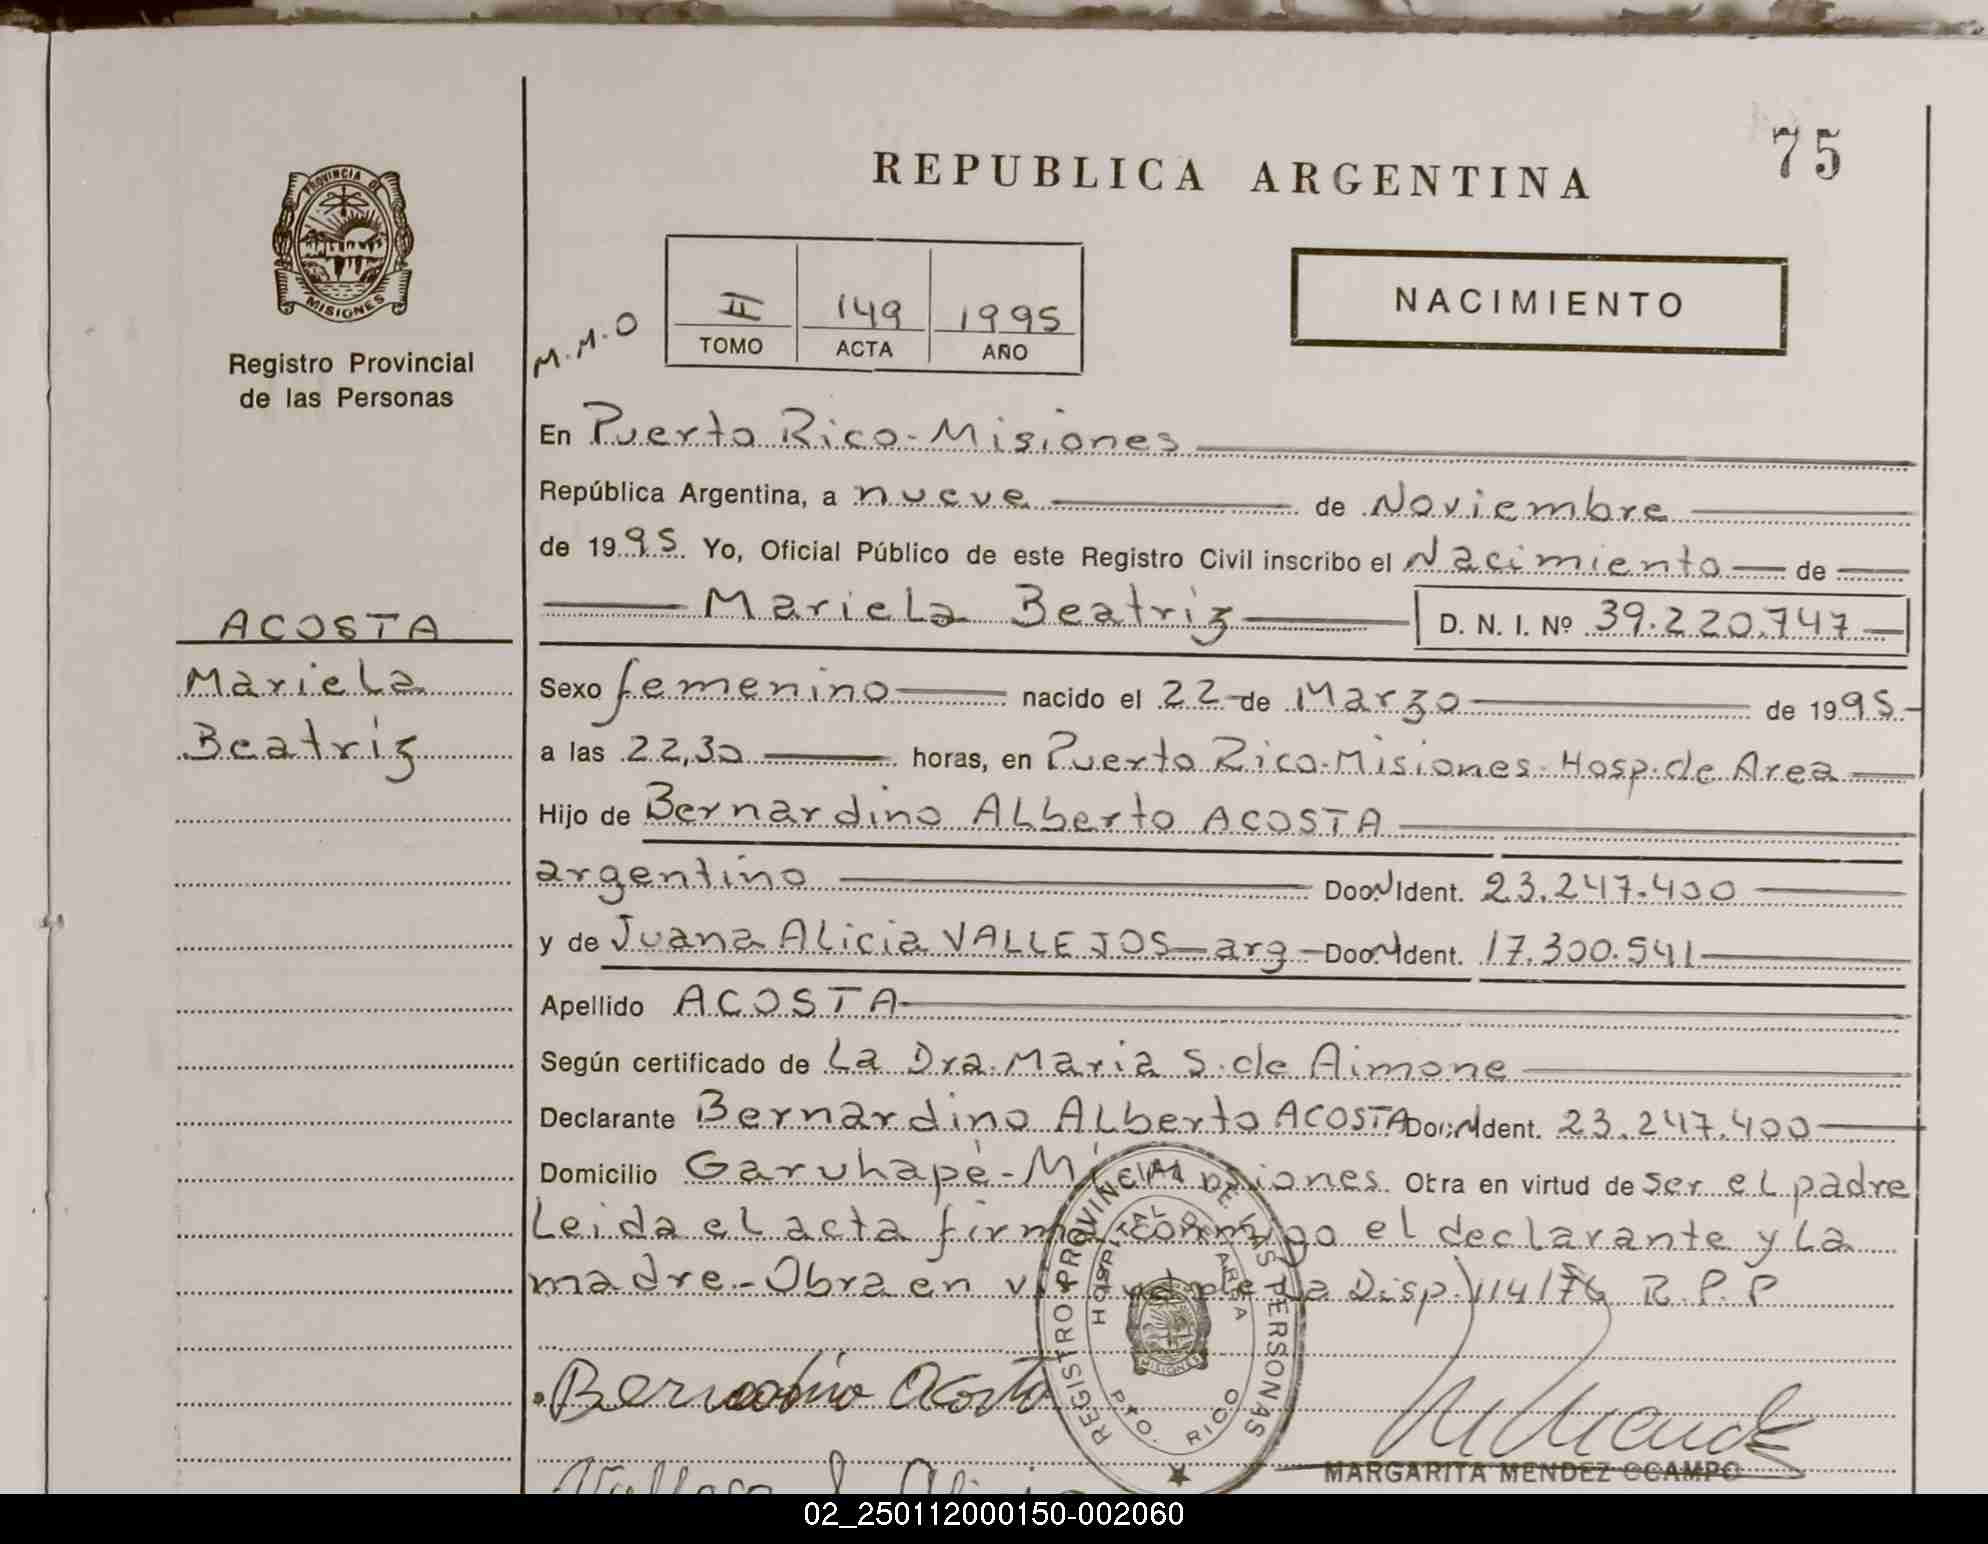 75
REPUBLICA ARGENTINA
PROVINCIA DE
MISIONES
Registro Provincial
de las Personas
M.M.O
II 149 1995
TOMO ACTA AÑO
NACIMIENTO
En Puerto Rico-Misiones
República Argentina, a nueve de Noviembre
de 1995 Yo, Oficial Público de este Registro Civil inscribo el Nacimiento de
Mariela Beatriz D. N. I. Nº 39.220.747
ACOSTA
Mariela
Beatriz
Sexo femenino nacido el 22 de Marzo de 1995
a las 22,30 horas, en Puerto Rico-Misiones-Hosp. de Area
Hijo de Bernardino Alberto ACOSTA
argentino Ident. 23.247.400
y de Juana Alicia VALLEJOS arg Ident. 17.300.541
Apellido ACOSTA
Según certificado de La Dra. Maria S. de Aimone
Declarante Bernardino Alberto ACOSTA Ident. 23.247.400
Domicilio Garuhapé-Misiones. Obra en virtud de ser el padre
Leida el acta firma conmigo el declarante y la
madre.-Obra en virtud de la Disp. 114/76 R.P.P
Bernardino Acosta
REGISTRO PROVINCIAL DE LAS PERSONAS
HOSPITAL DE AREA
MISIONES
PTO. RICO
MARGARITA MENDEZ OCAMPO
02_250112000150-002060